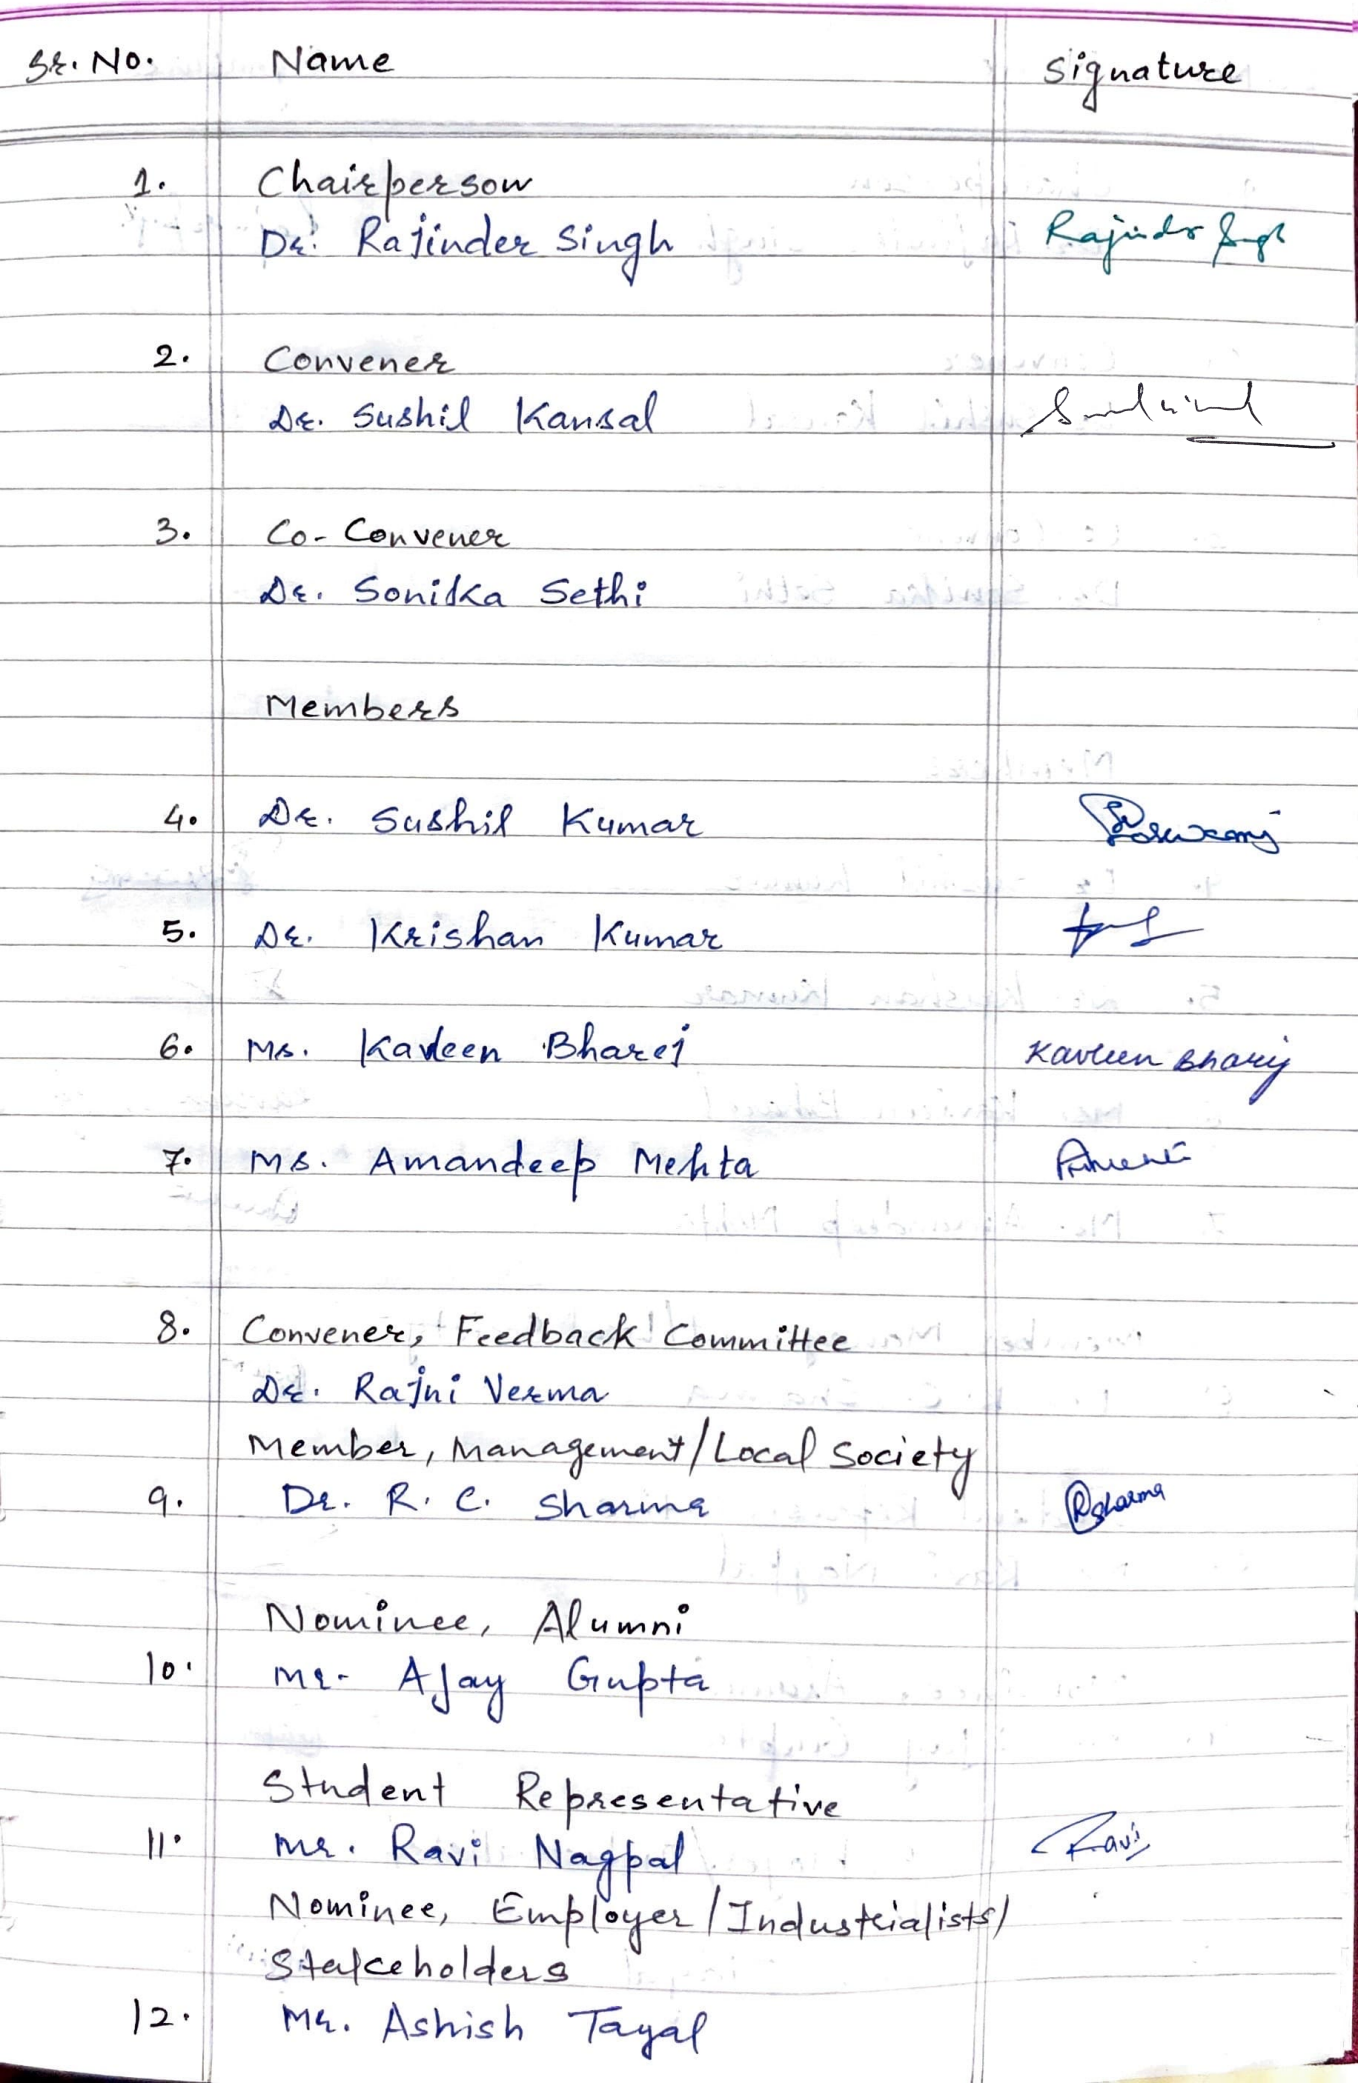 Sr. No. Name Signature
1. Chairperson
Dr. Rajinder Singh Rajinder Singh
2. Convener
Dr. Sushil Kansal
3. Co-Convener
Dr. Sonika Sethi
Members
4. Dr. Sushil Kumar
5. Dr. Krishan Kumar
6. Ms. Kavleen Bharej Kavleen Bharij
7. Ms. Amandeep Mehta
8. Convener, Feedback Committee
Dr. Rajni Verma
Member, Management/Local Society
9. Dr. R. C. Sharma RSharma
Nominee, Alumni
10. Mr. Ajay Gupta
Student Representative
11. Mr. Ravi Nagpal Ravi
Nominee, Employer/Industrialists/
Stakeholders
12. Mr. Ashish Tayal